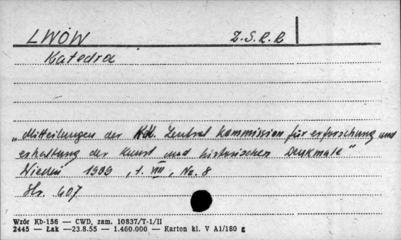 LWÓW Z.S.R.R
Katedra
„Mitteilungen der KK. Zentral Kommission für erforschung und
erhaltung der Kunst und historischen Denkmale"
Wiedeń 1909, t. VIII, No. 8
Str. 607
Wzór Kb-156 — CWD, zam. 10837/T-1/II
2445 — Łak — 23.8.55 — 1.460.000 — Karton kl. V A1/180 g